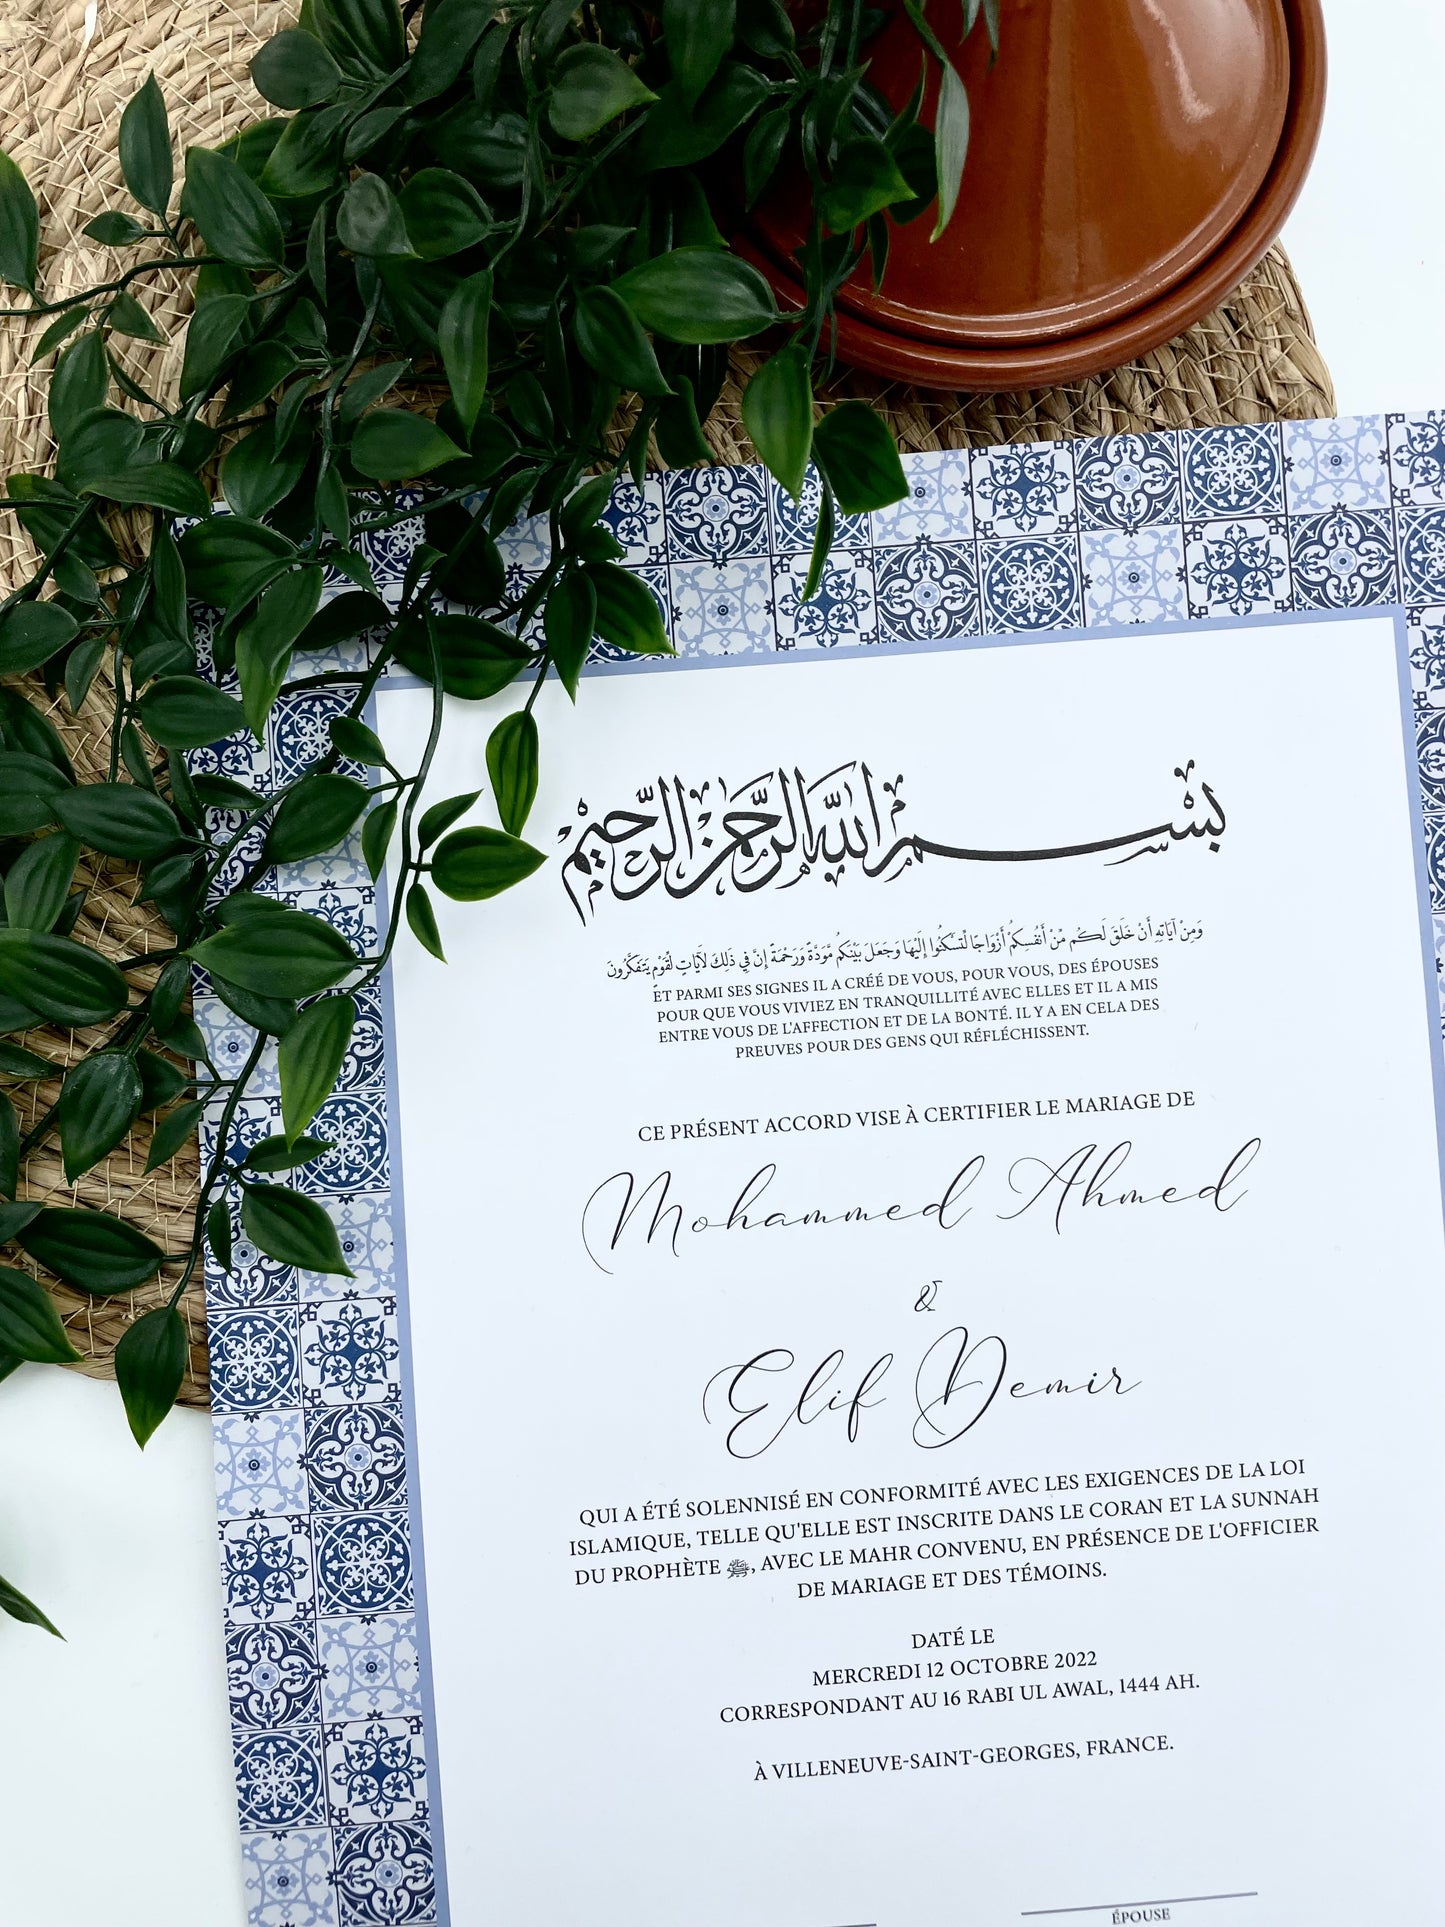 بِسْمِ اللَّهِ الرَّحْمَنِ الرَّحِيمِ
وَمِنْ آيَاتِهِ أَنْ خَلَقَ لَكُم مِّنْ أَنفُسِكُمْ أَزْوَاجًا لِّتَسْكُنُوا إِلَيْهَا وَجَعَلَ بَيْنَكُم مَّوَدَّةً وَرَحْمَةً إِنَّ فِي ذَلِكَ لَآيَاتٍ لِّقَوْمٍ يَتَفَكَّرُونَ
ET PARMI SES SIGNES IL A CRÉÉ DE VOUS, POUR VOUS, DES ÉPOUSES
POUR QUE VOUS VIVIEZ EN TRANQUILLITÉ AVEC ELLES ET IL A MIS
ENTRE VOUS DE L'AFFECTION ET DE LA BONTÉ. IL Y A EN CELA DES
PREUVES POUR DES GENS QUI RÉFLÉCHISSENT.
CE PRÉSENT ACCORD VISE À CERTIFIER LE MARIAGE DE
Mohammed Ahmed
&
Elif Demir
QUI A ÉTÉ SOLENNISÉ EN CONFORMITÉ AVEC LES EXIGENCES DE LA LOI
ISLAMIQUE, TELLE QU'ELLE EST INSCRITE DANS LE CORAN ET LA SUNNAH
DU PROPHÈTE ﷺ, AVEC LE MAHR CONVENU, EN PRÉSENCE DE L'OFFICIER
DE MARIAGE ET DES TÉMOINS.
DATÉ LE
MERCREDI 12 OCTOBRE 2022
CORRESPONDANT AU 16 RABI UL AWAL, 1444 AH.
À VILLENEUVE-SAINT-GEORGES, FRANCE.
ÉPOUSE